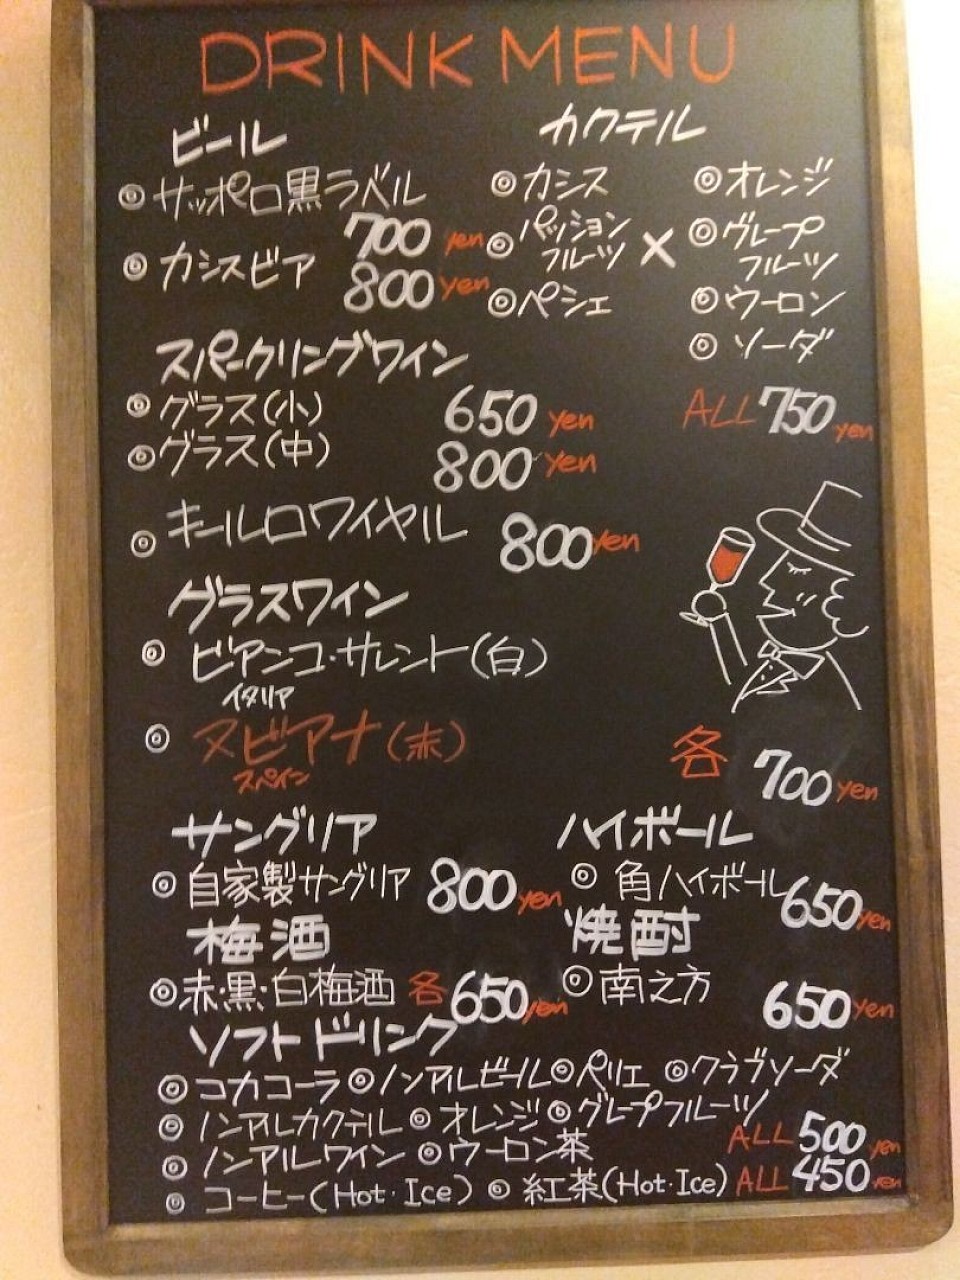 DRINK MENU
ビール
◎サッポロ黒ラベル
700 yen
◎カシスビア
800 yen
カクテル
◎カシス
◎パッション
フルーツ
◎ペシェ
×
◎オレンジ
◎グレープ
フルーツ
◎ウーロン
◎ソーダ
ALL 750 yen
スパークリングワイン
◎グラス(小) 650 yen
◎グラス(中) 800 yen
◎キールロワイヤル 800 yen
グラスワイン
◎ビアンコ・サレント(白)
イタリア
◎ヌビアナ(赤)
スペイン
各 700 yen
サングリア
◎自家製サングリア 800 yen
ハイボール
◎角ハイボール 650 yen
梅酒
◎赤・黒・白梅酒 各650 yen
焼酎
◎南之方 650 yen
ソフトドリンク
◎コカコーラ ◎ノンアルビール ◎ペリエ ◎クラブソーダ
◎ノンアルカクテル ◎オレンジ ◎グレープフルーツ
◎ノンアルワイン ◎ウーロン茶 ALL 500 yen
◎コーヒー(Hot・Ice) ◎紅茶(Hot・Ice) ALL 450 yen